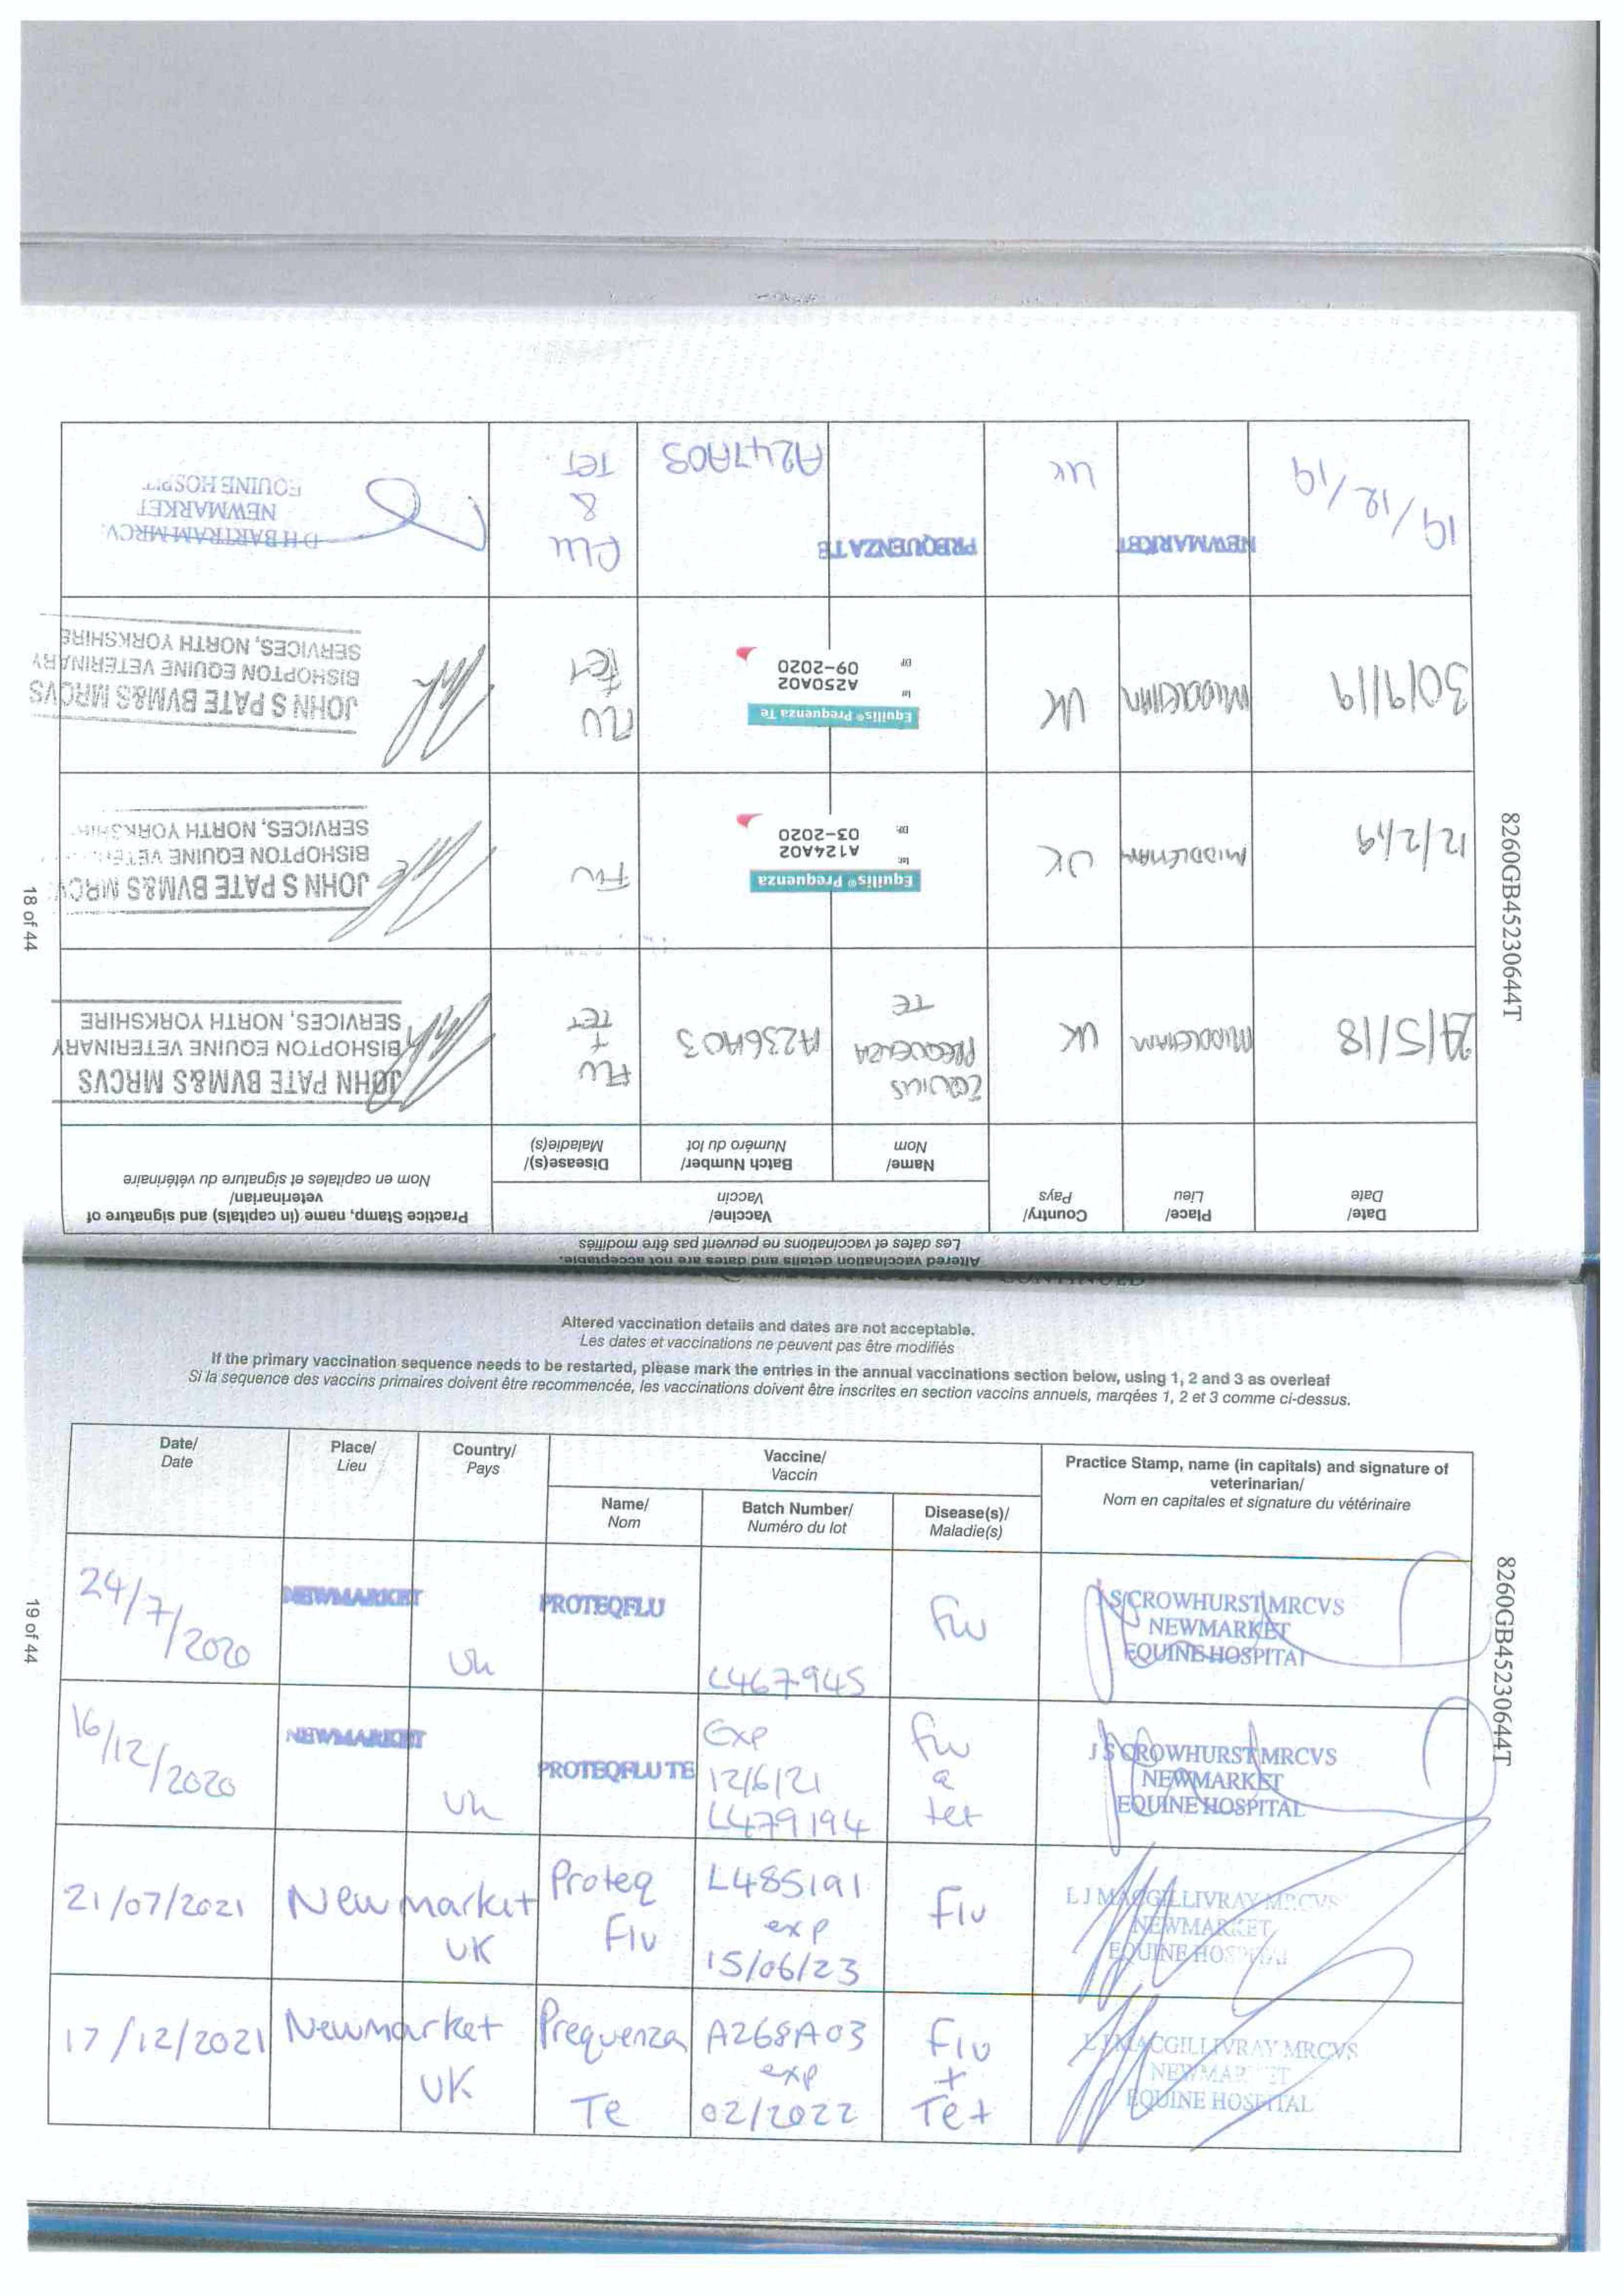 Altered vaccination details and dates are not acceptable.
Les dates et vaccinations ne peuvent pas être modifiés
Date/
Date
Place/
Lieu
Country/
Pays
Vaccine/
Vaccin
Name/
Nom
Batch Number/
Numéro du lot
Disease(s)/
Maladie(s)
Practice Stamp, name (in capitals) and signature of
veterinarian/
Nom en capitales et signature du vétérinaire
21/5/18
MIDDLEHAM
UK
EQUILIS
PREQUENZA
TE
A236A03
FLU
+
TET
JOHN PATE BVM&S MRCVS
BISHOPTON EQUINE VETERINARY
SERVICES, NORTH YORKSHIRE
12/2/19
MIDDLEHAM
UK
Equilis® Prequenza
Lot:
A124A02
EXP:
03-2020
FLU
JOHN S PATE BVM&S MRCV
BISHOPTON EQUINE VETE
SERVICES, NORTH YORKSHI
30/9/19
MIDDLEHAM
UK
Equilis® Prequenza Te
lot
A250A02
EXP
09-2020
FLU
+
TET
JOHN S PATE BVM&S MRCVS
BISHOPTON EQUINE VETERINARY
SERVICES, NORTH YORKSHIRE
19/12/19
NEWMARKET
UK
PREQUENZA TE
A247A03
FLU
&
TET.
D H BARTRAM MRCV
NEWMARKET
EQUINE HOSPIT
8260GB45230644T
18 of 44
CONTINUED
Altered vaccination details and dates are not acceptable.
Les dates et vaccinations ne peuvent pas être modifiés
If the primary vaccination sequence needs to be restarted, please mark the entries in the annual vaccinations section below, using 1, 2 and 3 as overleaf
Si la sequence des vaccins primaires doivent être recommencée, les vaccinations doivent être inscrites en section vaccins annuels, marqées 1, 2 et 3 comme ci-dessus.
Date/
Date
Place/
Lieu
Country/
Pays
Vaccine/
Vaccin
Name/
Nom
Batch Number/
Numéro du lot
Disease(s)/
Maladie(s)
Practice Stamp, name (in capitals) and signature of
veterinarian/
Nom en capitales et signature du vétérinaire
24/7/2020
NEWMARKET
Uk
PROTEQFLU
L467945
Flu
J S CROWHURST MRCVS
NEWMARKET
EQUINE HOSPITAL
16/12/2020
NEWMARKET
Uk
PROTEQFLU TE
Exp
12/6/21
L479194
Flu
&
tet
J S CROWHURST MRCVS
NEWMARKET
EQUINE HOSPITAL
21/07/2021
Newmarket
UK
Proteq
Flu
L485191
exp
15/06/23
Flu
L J MACGILLIVRAY MRCVS
NEWMARKET
EQUINE HOSPITAL
17/12/2021
Newmarket
UK
Prequenza
Te
A268A03
exp
02/2022
Flu
+
Tet
L J MACGILLIVRAY MRCVS
NEWMARKET
EQUINE HOSPITAL
8260GB45230644T
19 of 44